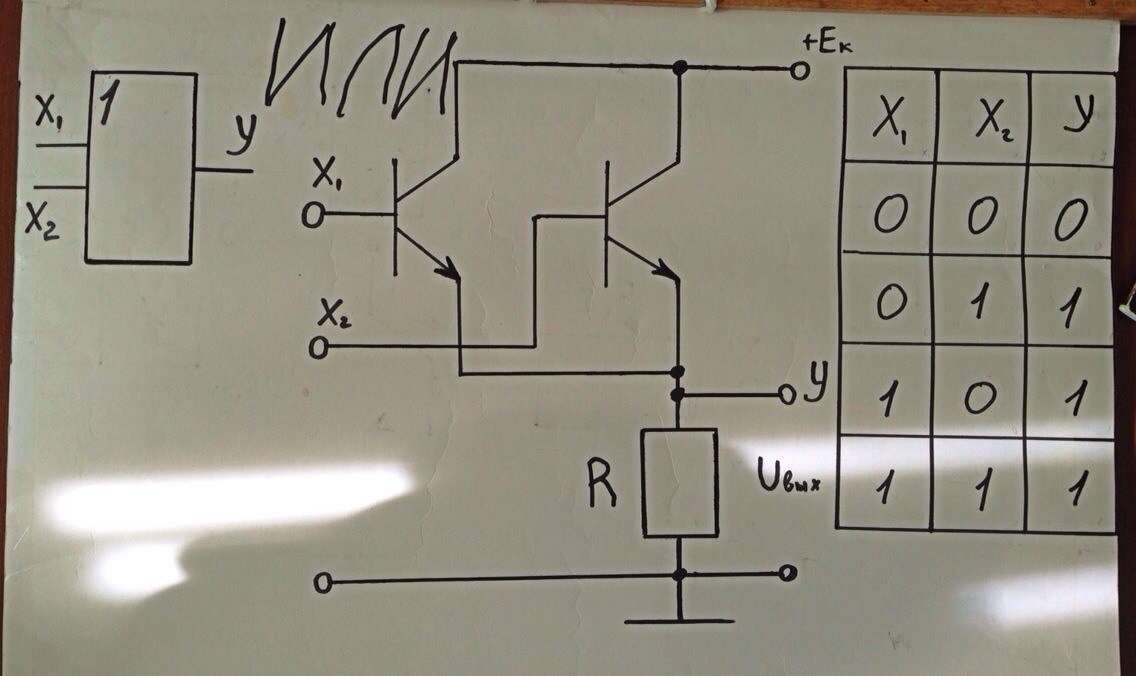 ИЛИ
+Eк
X₁
1
У
X₂
X₁
X₂
У
R
Uвых
X₁ X₂ У
0 0 0
0 1 1
1 0 1
1 1 1